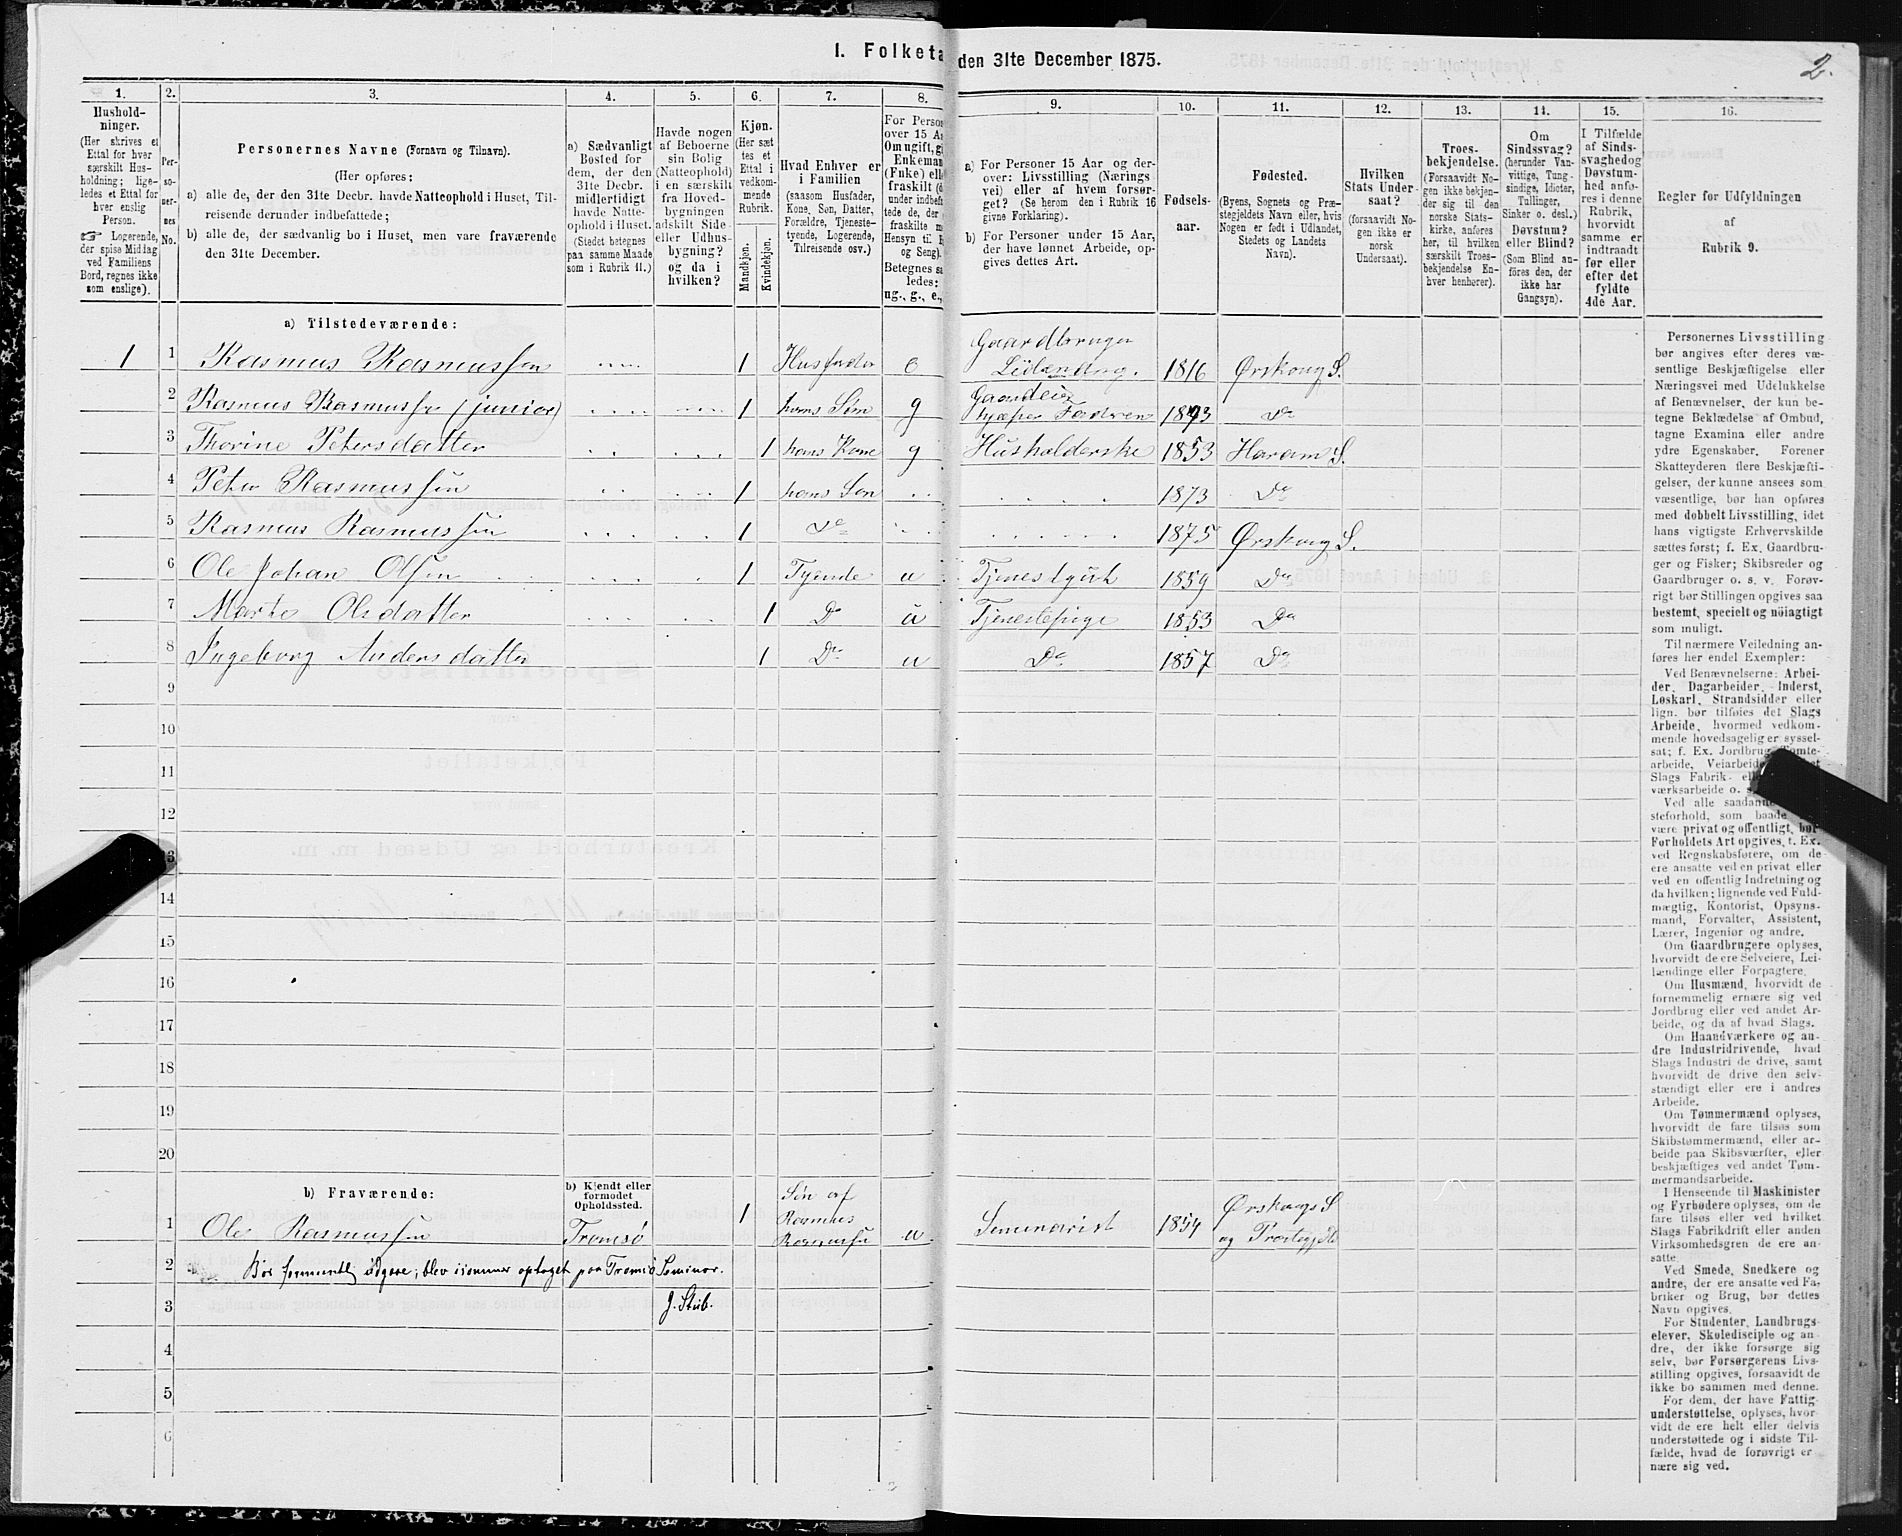 I. Folketa den 31te December 1875.
2.
1. 2. 3. 4. 5. 6. 7. 8. 9. 10. 11. 12. 13. 14. 15. 16.
Hushold-
ninger.
(Her skrives et
Ettal for hver
særskilt Hus-
holdning; lige-
ledes et Ettal for
hver enslig
Person.
☞ Logerende,
der spise Middag
ved Familiens
Bord, regnes ikke
som enslige).
Per-
so-
ner-
nes
No.
Personernes Navne (Fornavn og Tilnavn).
(Her opføres:
a) alle de, der den 31te Decbr. havde Natteophold i Huset, Til-
reisende derunder indbefattede;
b) alle de, der sædvanlig bo i Huset, men vare fraværende
den 31te December.
a) Sædvanligt
Bosted for
dem, der den
31te Decbr.
midlertidigt
havde Natte-
ophold i Huset.
(Stedet betegnes
paa samme Maade
som i Rubrik 11.)
Havde nogen
af Beboerne
sin Bolig
(Natteophold)
i en særskilt
fra Hoved-
bygningen
adskilt Side-
eller Udhus-
bygning?
og da i
hvilken?
Kjøn.
(Her sæt-
tes et
Ettal i
vedkom-
mende
Rubrik.
Mandkjøn.
Kvindekjøn.
Hvad Enhver er
i Familien
(saasom Husfader,
Kone, Søn, Datter,
Forældre, Tjeneste-
tyende, Logerende,
Tilreisende osv.)
For Person
over 15 Aa
Om ugift, g
Enkeman
(Fnke) elle
fraskilt (d
under indbef
tede de, der
fraskilte m
Hensyn til B
og Seng).
Betegnes sa
ledes:
ug., g., e.,
a) For Personer 15 Aar og der-
over: Livsstilling (Nærings-
vei) eller af hvem forsør-
get? (Se herom den i Rubrik 16
givne Forklaring).
b) For Personer under 15 Aar,
der have lønnet Arbeide, op-
gives dettes Art.
Fødsels-
aar.
Fødested.
(Byens, Sognets og Præ-
stegjeldets Navn eller, hvis
Nogen er født i Udlandet,
Stedets og Landets
Navn).
Hvilken
Stats Under-
saat?
(forsaavidt No-
gen ikke er
norsk
Undersaat).
Troes-
bekjendelse.
(Forsaavidt No-
gen ikke bekjen-
der sig til den
norske Stats-
kirke, anføres
her, til hvilken
særskilt Troes-
bekjendelse En-
hver henhører).
Om
Sindssvag?
(herunder Van-
vittige, Tung-
sindige, Idioter,
Tullinger,
Sinker o. desl.)
Døvstum?
eller Blind?
(Som Blind an-
føres den, der
ikke har
Gangsyn).
I Tilfælde
af Sinds-
svaghed og
Døvstum-
hed anfø-
res i denne
Rubrik,
hvorvidt
samme er
indtraadt
før eller
efter det
fyldte
4de Aar.
Regler for Udfyldningen
af
Rubrik 9.
a) Tilstedeværende:
1 1 Rasmus Rasmussen 1 Husfader e Gaardbruger Leilænding. 1816 Ørskoug S.
2 Rasmus Rasmussen (junior) 1 hans Søn g Gaardeier hjælper Faderen 1843 Do
3 Thorine Petersdatter 1 hans Kone g Husholderske 1853 Haram S.
4 Peter Rasmussen 1 hans Søn 1873 Do
5 Rasmus Rasmussen 1 Do 1875 Ørskoug S.
6 Ole Johan Olsen 1 Tyende u Tjenestgut 1859 Do
7 Marte Olsdatter 1 Do u Tjenestepige 1853 Do
8 Ingeborg Andersdatter 1 Do u Do 1857 Do
9
10
11
12
13
14
15
16
17
18
19
20
b) Fraværende:
b) Kjendt eller
formodet
Opholdssted.
1 Ole Rasmussen Tromsø 1 Søn af Rasmus Rasmussen u. Seminarist 1854 Ørskougs S og Præstegjeld
2 Bør formentlig udgaae; blev isommer optaget paa Tromsø Seminar.
3 J. Stub.
4
5
6
Personernes Livsstilling
bør angives efter deres væ-
sentlige Beskjæftigelse eller
Næringsvei med Udelukkelse
af Benævnelser, der kun be-
tegne Beklædelse af Ombud,
tagne Examina eller andre
ydre Egenskaber. Forener
Skatteyderen flere Beskjæfti-
gelser, der kunne ansees som
væsentlige, bør han opføres
med dobbelt Livsstilling, idet
hans vigtigste Erhvervskilde
sættes først; f. Ex. Gaardbru-
ger og Fisker; Skibsreder og
Gaardbruger o. s. v. Forøv-
rigt bør Stillingen opgives saa
bestemt, specielt og nöiagtigt
som muligt.
Til nærmere Veiledning an-
føres her endel Exempler:
Ved Benævnelserne: Arbei-
der, Dagarbeider, Inderst,
Løskarl, Strandsidder eller
lign. bør tilføies det Slags
Arbeide, hvormed vedkom-
mende hovedsagelig er syssel-
sat; f. Ex. Jordbrug, Tomte-
arbeide, Veiarbeide,
Slags Fabrik-
værksarbeide o. s.
Ved alle saadanne
steforhold, som baade
være privat og offentligt, bør
Forholdets Art opgives, f. Ex.
ved Regnskabsførere, om de
ere ansatte ved en privat eller
ved en offentlig Indretning og
da hvilken; lignende ved Fuld-
mægtig, Kontorist, Opsyns-
mand, Forvalter, Assistent,
Lærer, Ingeniør og andre.
Om Gaardbrugere oplyses,
hvorvidt de ere Selveiere, Lei-
lændinge eller Forpagtere.
Om Husmænd, hvorvidt de
fornemmelig ernære sig ved
Jordbrug eller ved andet Ar-
beide, og da af hvad Slags.
Om Haandværkere og an-
dre Industridrivende, hvad
Slags Industri de drive, samt
hvorvidt de drive den selv-
stændigt eller ere i andres
Arbeide.
Om Tømmermænd oplyses,
hvorvidt de fare tilsøs som
Skibstømmermænd, eller ar-
beide paa Skibsværfter, eller
beskjæftiges ved andet Tøm-
mermandsarbeide.
I Henseende til Maskinister
og Fyrbødere oplyses, om de
fare tilsøs eller ved hvilket
Slags Fabrikdrift eller anden
Virksomhedsgren de ere an-
satte.
Ved Smede, Snedkere og
andre, der ere ansatte ved Fa-
briker og Brug, bør dettes
Navn opgives.
For Studenter, Landbrugs-
elever, Skoledisciple og an-
dre, der ikke forsørge sig
selv, bør Forsørgerens Livs-
stilling opgives, forsaavidt de
ikke bo sammen med denne.
For dem, der have Fattig-
understøttelse, oplyses, hvor-
vidt de ere helt eller delvis
understøttede og i sidste Til-
fælde, hvad de forøvrigt er-
nære sig ved.